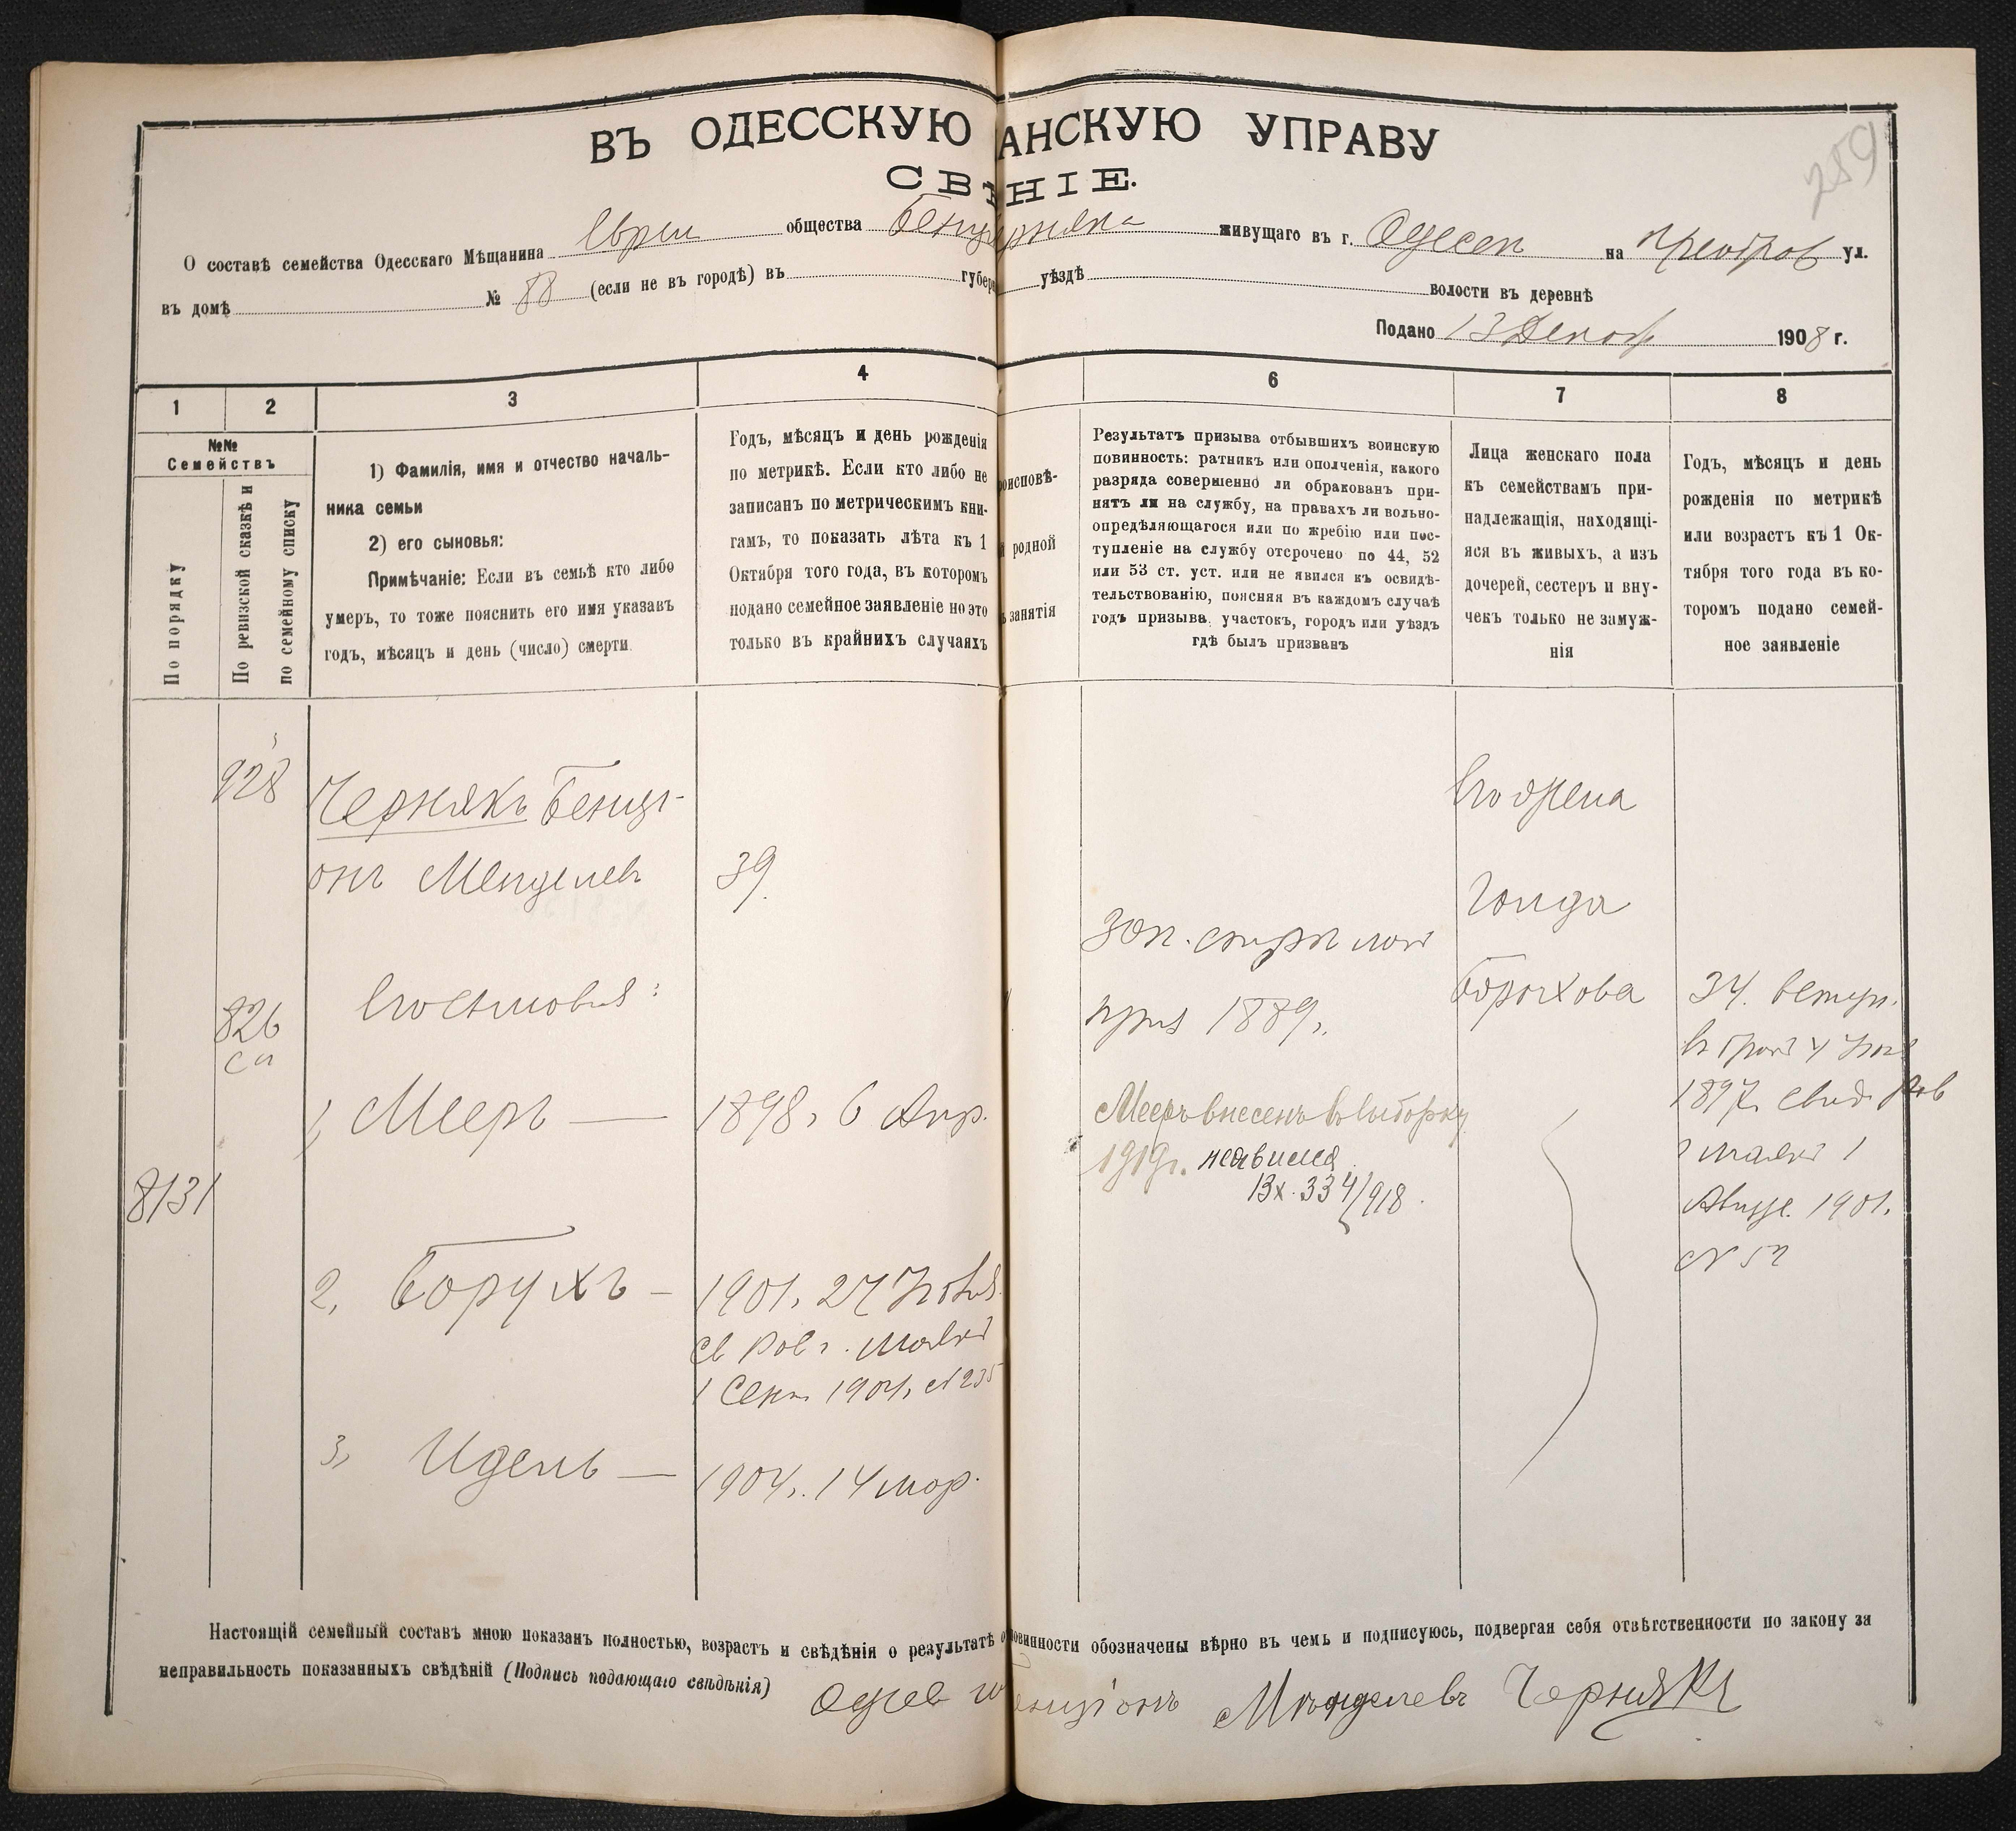 259
ВЪ ОДЕССКУЮ АНСКУЮ УПРАВУ
СВѢНІЕ.
О составѣ семейства Одесскаго Мѣщанина Евреи общества живущаго въ г. Одессѣ на Преобров ул.
въ домѣ № 88 (если не въ городѣ) въ губер уѣздѣ волости въ деревнѣ
Подано 13 Декаб 1908 г.
1 2 3 4 6 7 8
№№
Семействъ
По порядку
По ревизской сказкѣ и
по семейному списку
1) Фамилія, имя и отчество началь-
ника семьи
2) его сыновья:
Примѣчаніе: Если въ семьѣ кто либо
умеръ, то тоже пояснить его имя указавъ
годъ, мѣсяцъ и день (число) смерти
Годъ, мѣсяцъ и день рожденія
по метрикѣ. Если кто либо не
записанъ по метрическимъ кни-
гамъ, то показать лѣта къ 1
Октября того года, въ которомъ
подано семейное заявленіе но это
только въ крайнихъ случаяхъ
роисповѣ-
и родной
ъ занятія
Результатъ призыва отбывшихъ воинскую
повинность: ратникъ или ополченія, какого
разряда совершенно ли обракованъ при-
нятъ ли на службу, на правахъ ли вольно-
опредѣляющагося или по жребію или пос-
тупленіе на службу отсрочено по 44, 52
или 53 ст. уст. или не явился къ освидѣ-
тельствованію, поясняя въ каждомъ случаѣ
годъ призыва участокъ, городъ или уѣздъ
гдѣ былъ призванъ
Лица женскаго пола
къ семействамъ при-
надлежащія, находящі-
яся въ живыхъ, а изъ
дочерей, сестеръ и вну-
чекъ только не замуж-
нія
Годъ, мѣсяцъ и день
рожденія по метрикѣ
или возрастъ къ 1 Ок-
тября того года въ ко-
торомъ подано семей-
ное заявленіе
928
Чернякъ Бенці-
онъ Менделевъ
39
826
сп
Его сыновья:
1, Мееръ — 1898, 6 Апр.
8131
2, Борухъ — 1901, 27
св Рав г. Маяки
1 Сент 1901, №235
3, Идель — 1904, 14 мар.
приз 1889,
Мееръ внесенъ въ выборку
1919г. неявился
Вх. 334/918.
Его жена
Голда
Борухова
34. вступ.
въ бракъ 4
1897, свид. Рав
г Маяки 1
1901,
№ 52
Настоящій семейный составъ мною показанъ полностью, возрастъ и свѣдѣнія о результатѣ о повинности обозначены вѣрно въ чемъ и подписуюсь, подвергая себя отвѣтственности по закону за
неправильность показанныхъ свѣдѣній (Подпись подающаго свѣдѣнія) Одес енціонъ Мѣнделевъ Чернякъ